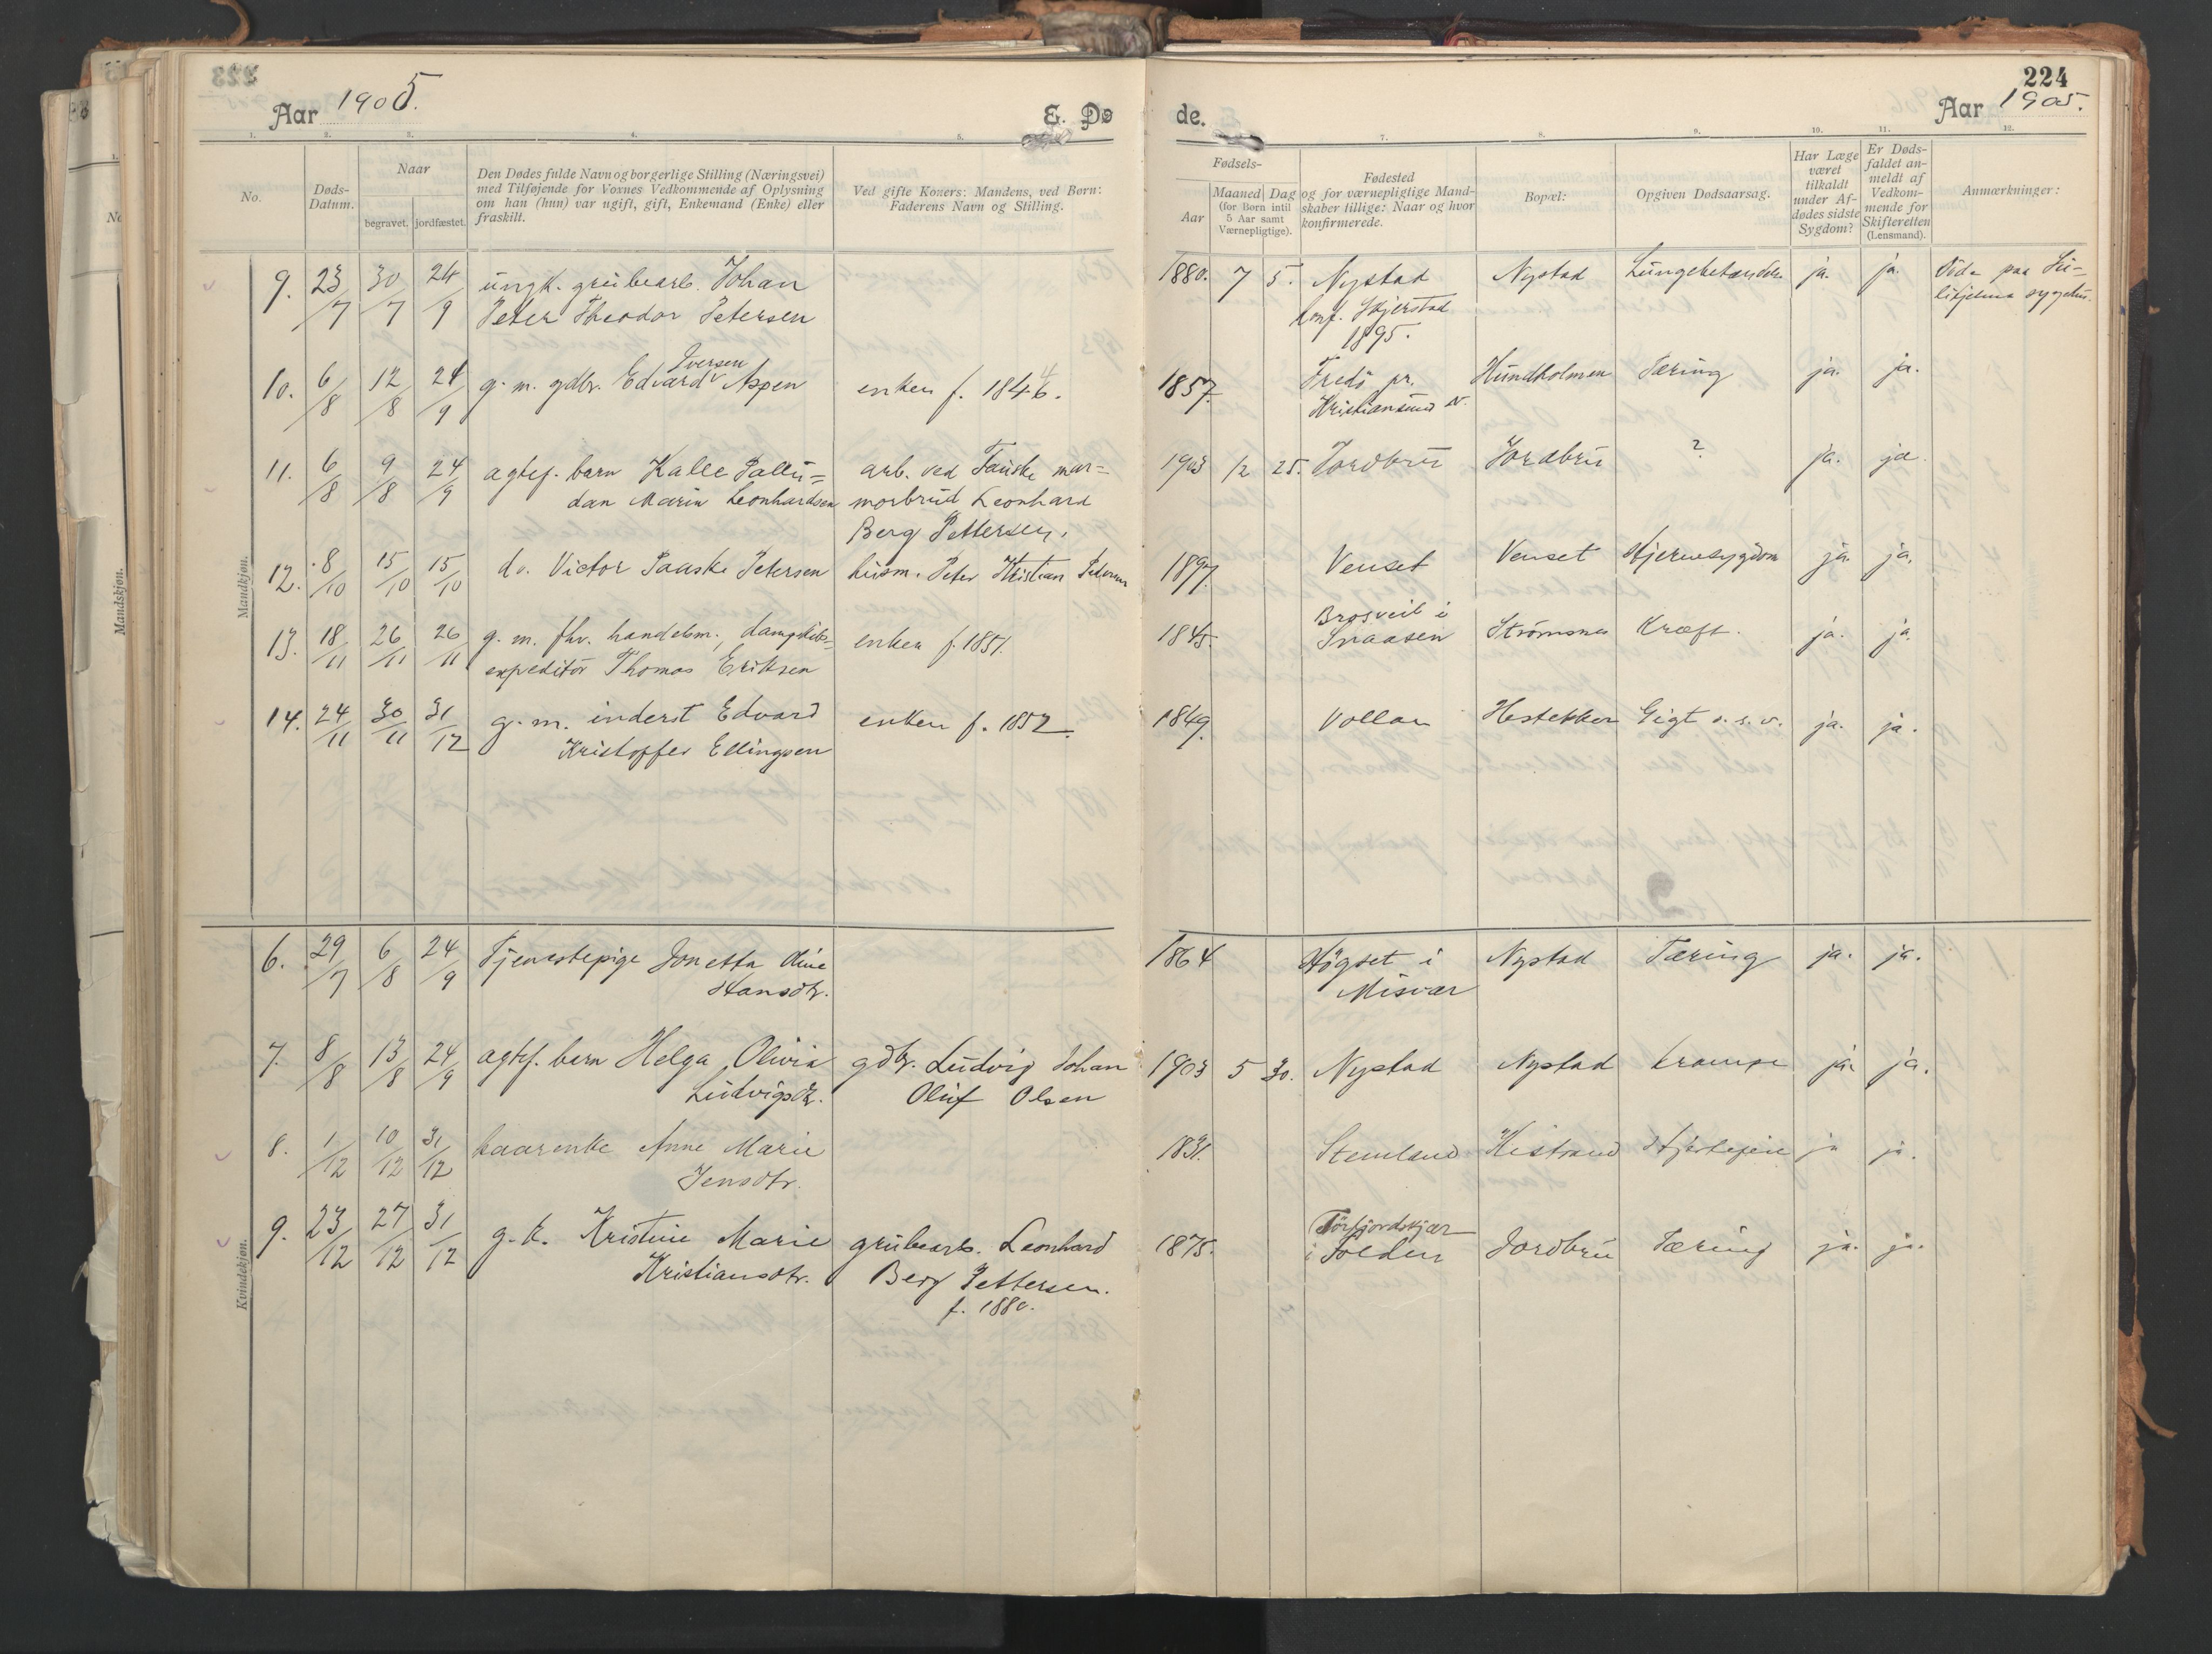 224
Aar 1905.
E. Døde.
Aar 1905.
1. 2. 3. 4. 5. 7. 8. 9. 10. 11. 12.
No.
Døds-Datum.
Naar
begravet. jordfæstet.
Den Dødes fulde Navn og borgerlige Stilling (Næringsvei)
med Tilføjende for Voxnes Vedkommende af Oplysning
om han (hun) var ugift, gift, Enkemand (Enke) eller
fraskilt.
Ved gifte Koner: Mandens, ved Børn:
Faderens Navn og Stilling.
Fødsels-
Aar
Maaned
(for Børn intil
5 Aar samt
Værnepligtige).
Dag
Fødested
og for værnepligtige Mand-
skaber tillige: Naar og hvor
konfirmerede.
Bopæl:
Opgiven Dødsaarsag.
Har Læge
været
tilkaldt
under Af-
dødes sidste
Sygdom?
Er Døds-
faldet an-
meldt af
Vedkom-
mende for
Skifteretten
(Lensmand).
Anmærkninger:
Mandkjøn.
9. 23/7 30/7 24/9 ungk. grubearb. Johan
Peter Theodor Petersen
1880. 7 5. Nystad
konf. Skjerstad
1895.
Nystad Lungebetændelse ja. ja. Døde paa Su-
litjelma sygehus.
10. 6/8 12/8 24/9 g. m. gdbr. Edvard Iversen Aspen enken f. 1846. 1857. Fredø pr.
Kristiansund N.
Hundholmen Tæring ja. ja.
11. 6/8 9/8 24/9 agtef. barn Kalle Pallu=
dan Marin Leonhardsen
arb. ved Fauske mar=
morbrud Leonhard
Berg Pettersen.
1903 12 25. Jordbru Jordbru ? ja. ja.
12. 8/10 15/10 15/10 do. Victor Paaske Petersen husm. Peter Kristian Petersen 1897. Venset Venset Hjernesygdom ja. ja.
13. 18/11 26/11 26/11 g. m. fhv. handelsm., dampskibs-
expeditør Thomas Eriksen
enken f. 1851. 1845. i
Snaasen
Strømsnes Kræft. ja. ja.
14. 24/11 30/11 31/12 g. m. inderst Edvard
Kristoffer Ellingsen
enken f. 1852. 1849. Vollan Hestekker Gigt o. s. v. ja. ja.
Kvindekjøn.
6. 29/7 6/8 24/9 Tjenestepige Jonetta Oline
Hansdtr.
1864 Høgset i
Misvær
Nystad Tæring ja. ja.
7. 8/8 13/8 24/9 agtef. barn Helga Olivia
Ludvigsdtr.
gdbr. Ludvig Johan
Oluf Olsen
1903 5 30. Nystad Nystad krampe ja. ja.
8. 1/12 10/12 31/12 kaarenke Anne Marie
Jensdtr.
1831. Stemland Kistrand Hjertefeil ja ja.
9. 23/12 27/12 31/12 g. k. Kristine Marie
Kristiansdtr.
grubearb. Leonhard
Berg Pettersen.
f. 1880.
1875. Tørfjordskjær
i Folden
Jordbru Tæring ja. ja.